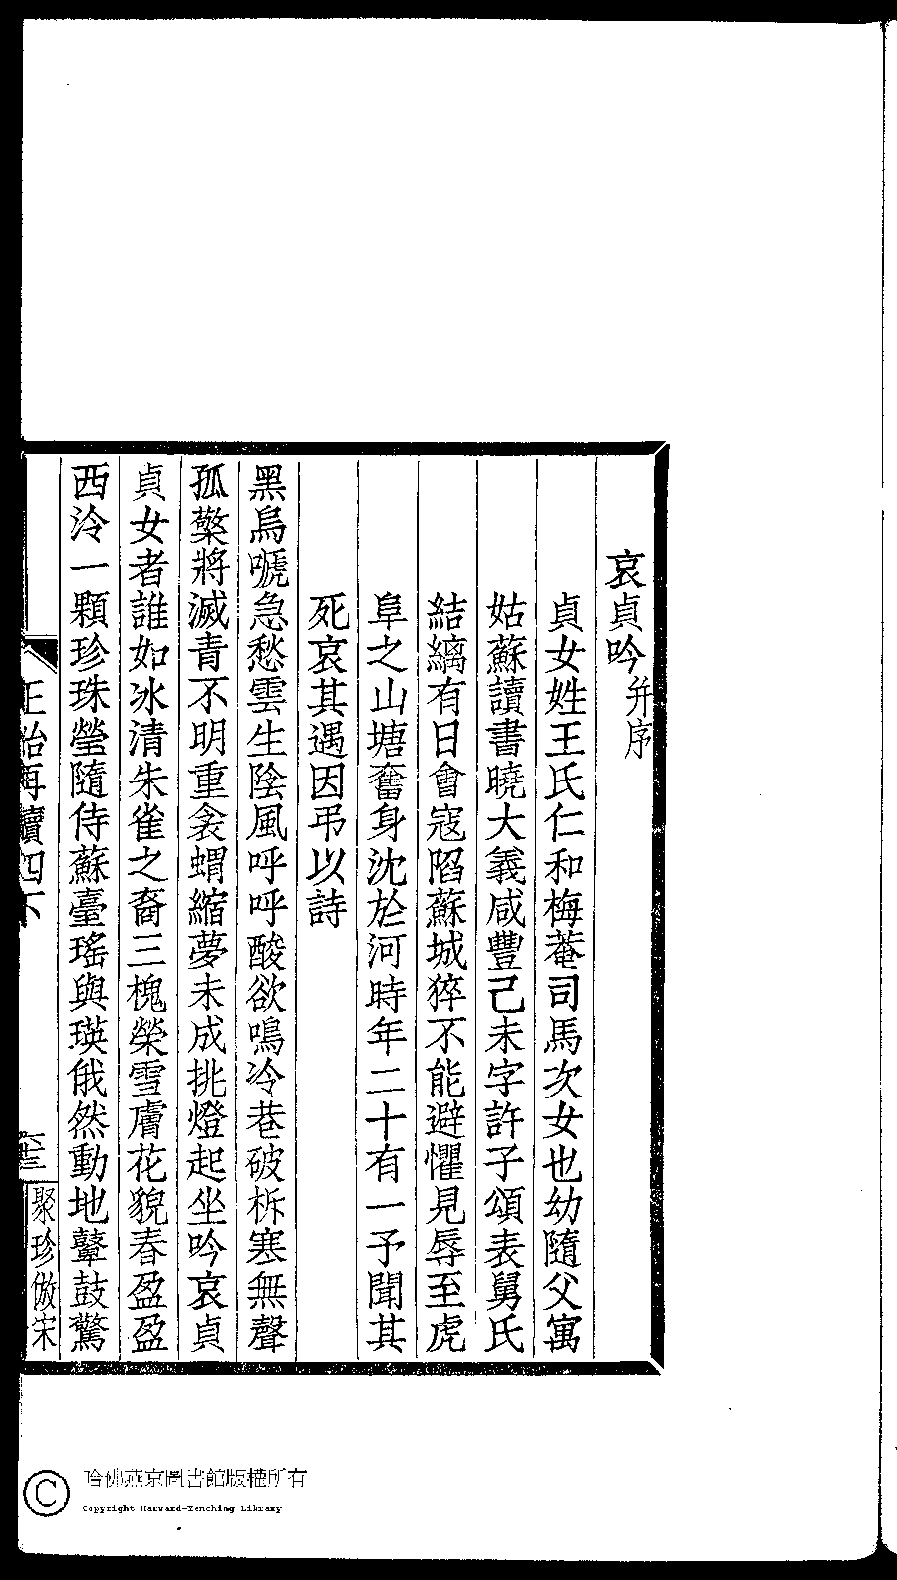 哀貞吟并序
貞女姓王氏仁和梅菴司馬次女也幼隨父寓
姑蘇讀書曉大義咸豐己未字許子頌表舅氏
結縭有日會寇陷蘇城猝不能避懼見辱至虎
阜之山塘奮身沈於河時年二十有一予聞其
死哀其遇因弔以詩
黑烏嗁急愁雲生陰風呼呼酸欲鳴冷巷破柝寒無聲
孤檠將滅青不明重衾蝟縮夢未成挑燈起坐吟哀貞
貞女者誰如冰清朱雀之裔三槐榮雪膚花貌春盈盈
西泠一顆珍珠瑩隨侍蘇臺瑤與瑛俄然動地鼙鼓驚
正始再續四下
聚珍倣宋
哈佛燕京圖書館版權所有
Copyright Harvard-Yenching Library